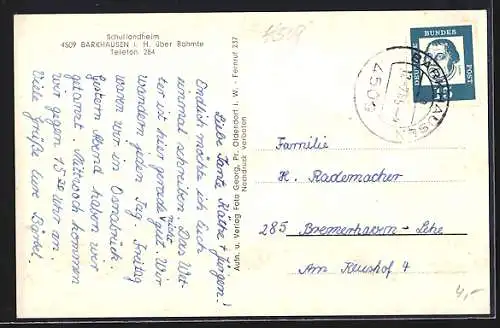 Schullandheim
4509 BARKHAUSEN i. H. über Bohmte
Telefon 284
Liebe Tante Käthe + Jürgen!
Endlich möchte ich Euch
einmal schreiben. Das Wet-
ter ist hier gerade nicht gut. Wir
wandern jeden Tag. Freitag
waren wir in Osnabrück.
Gestern Abend haben wir
getanzt. Mittwoch kommen
wir gegen 15.30 Uhr an.
Viele Grüße Eure Bärbel.
Aufn. u. Verlag Foto Georg, Pr. Oldendorf i. W. - Fernruf 257
Nachdruck verboten
4509
DEUTSCHE BUNDESPOST
BARKHAUSEN
4509
Familie
H. Rademacher
285 Bremerhaven-Lehe
Am Reushof 4
4,-